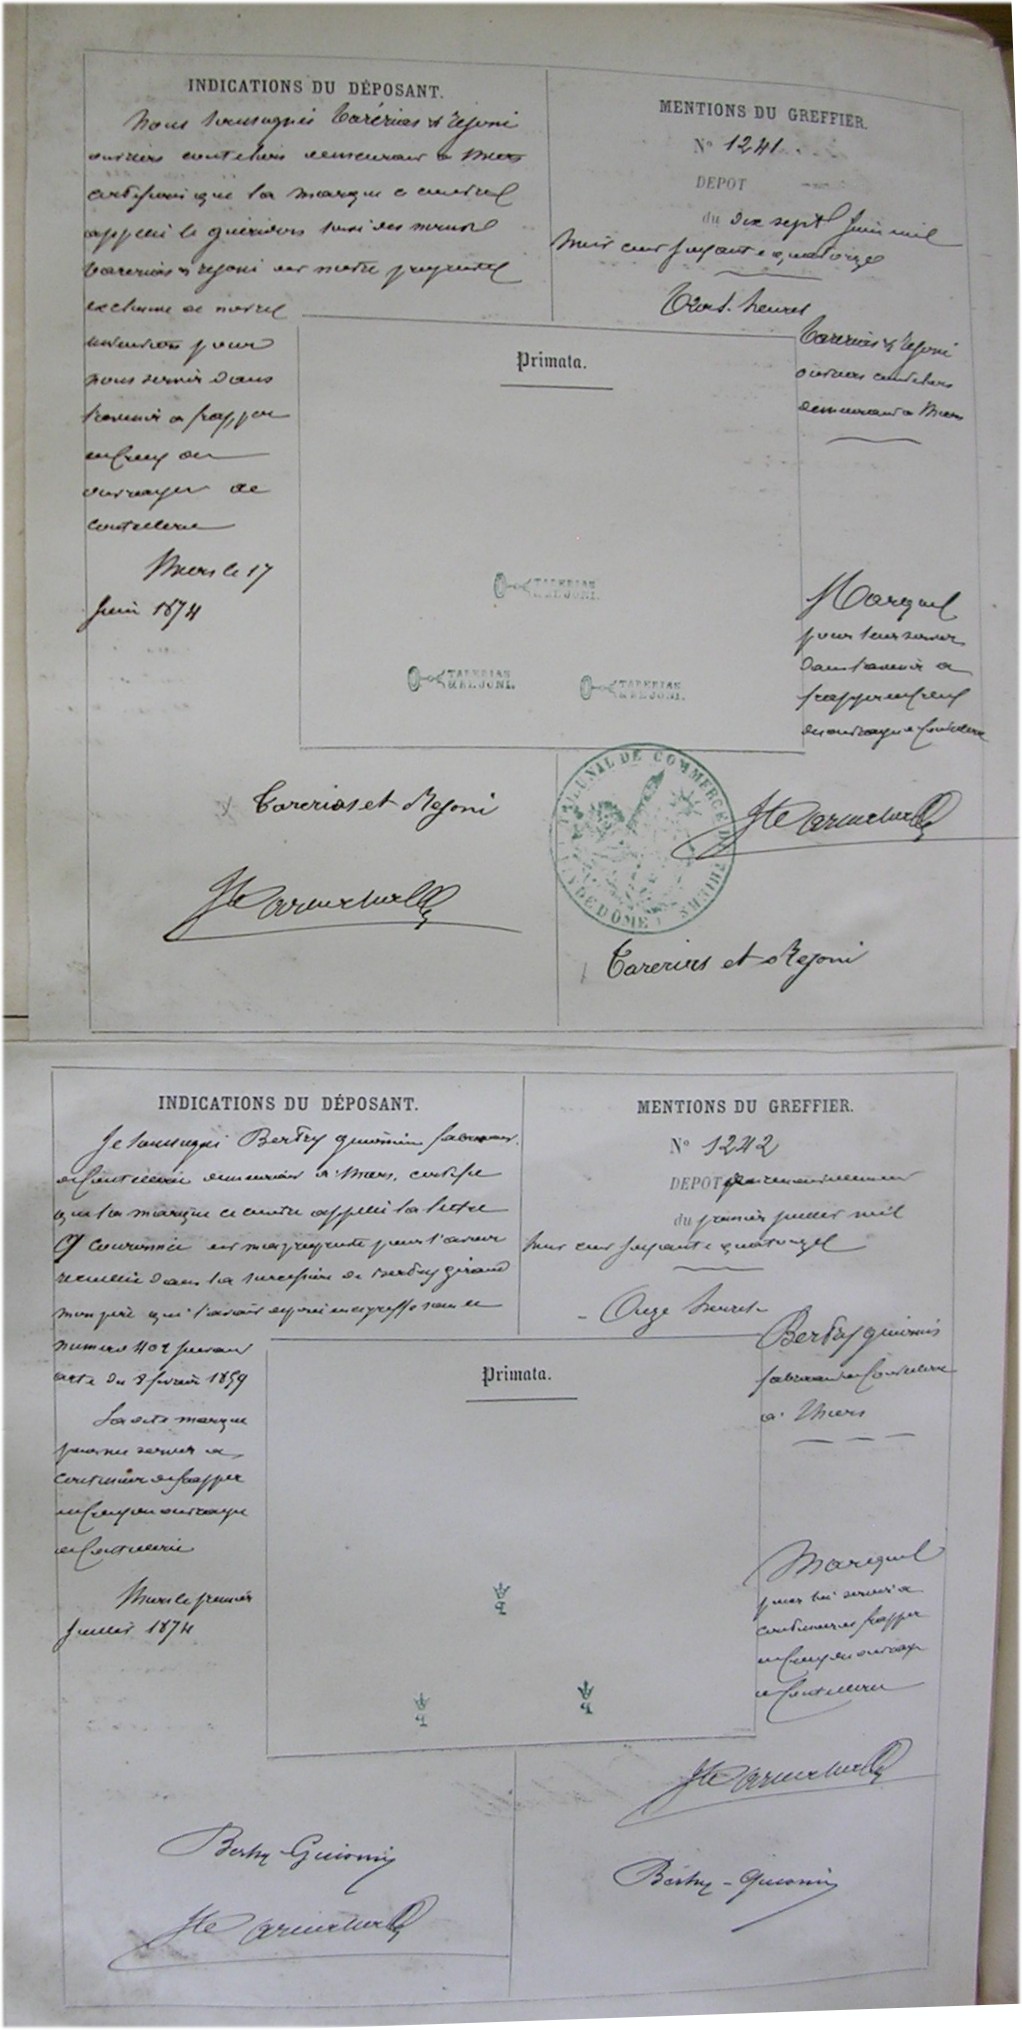 INDICATIONS DU DÉPOSANT.
Nous soussignés Tarérias & Rejoni
ouvriers couteliers demeurant a Thiers
certifions que la marque ci contre
appelée le guéridon suivi des mots
Tarerias & rejoni est notre propriété
exclusive de notre
invention pour
nous servir dans
l'avenir a frapper
en creux des
ouvrages de
coutellerie
Thiers le 17
Juin 1874
MENTIONS DU GREFFIER.
No 1241
DEPOT
du dix sept Juin mil
huit cent soixante quatorze
Trois heures
Tarerias & Rejoni
ouvriers couteliers
demeurant a Thiers
Primata.
TARERIAS
& REJONI.
TARERIAS
& REJONI.
TARERIAS
& REJONI.
Marque
pour leur servir
dans l'avenir a
frapper en creux
des ouvrages de Coutellerie
TRIBUNAL DE COMMERCE DE THIERS
PUY DE DÔME
Tarerias et Rejoni
Tarerias et Rejoni
INDICATIONS DU DÉPOSANT.
Je soussigné Bertry guionin fabricant
de Coutellerie demeurant à Thiers, certifie
que la marque ci contre appelée la lettre
q couronnée est ma propriété pour l'avoir
recueillie dans la succession de Bertry giraud
mon père qui l'avait déposée au greffe sous le
numero 402 suivant
acte du 8 février 1859
La dite marque
pour me servir a
continuer de frapper
en Creux des ouvrages
de Coutellerie
Thiers le premier
Juillet 1874
MENTIONS DU GREFFIER.
No 1242
DEPOT
du premier juillet mil
huit cent soixante quatorze
Onze heures
Bertry guionin
fabricant de Coutellerie
a Thiers
Primata.
q
q
q
Marque
pour lui servir a
continuer de frapper
en Creux des ouvrages
de Coutellerie
Bertry-Guionin
Bertry-Guionin